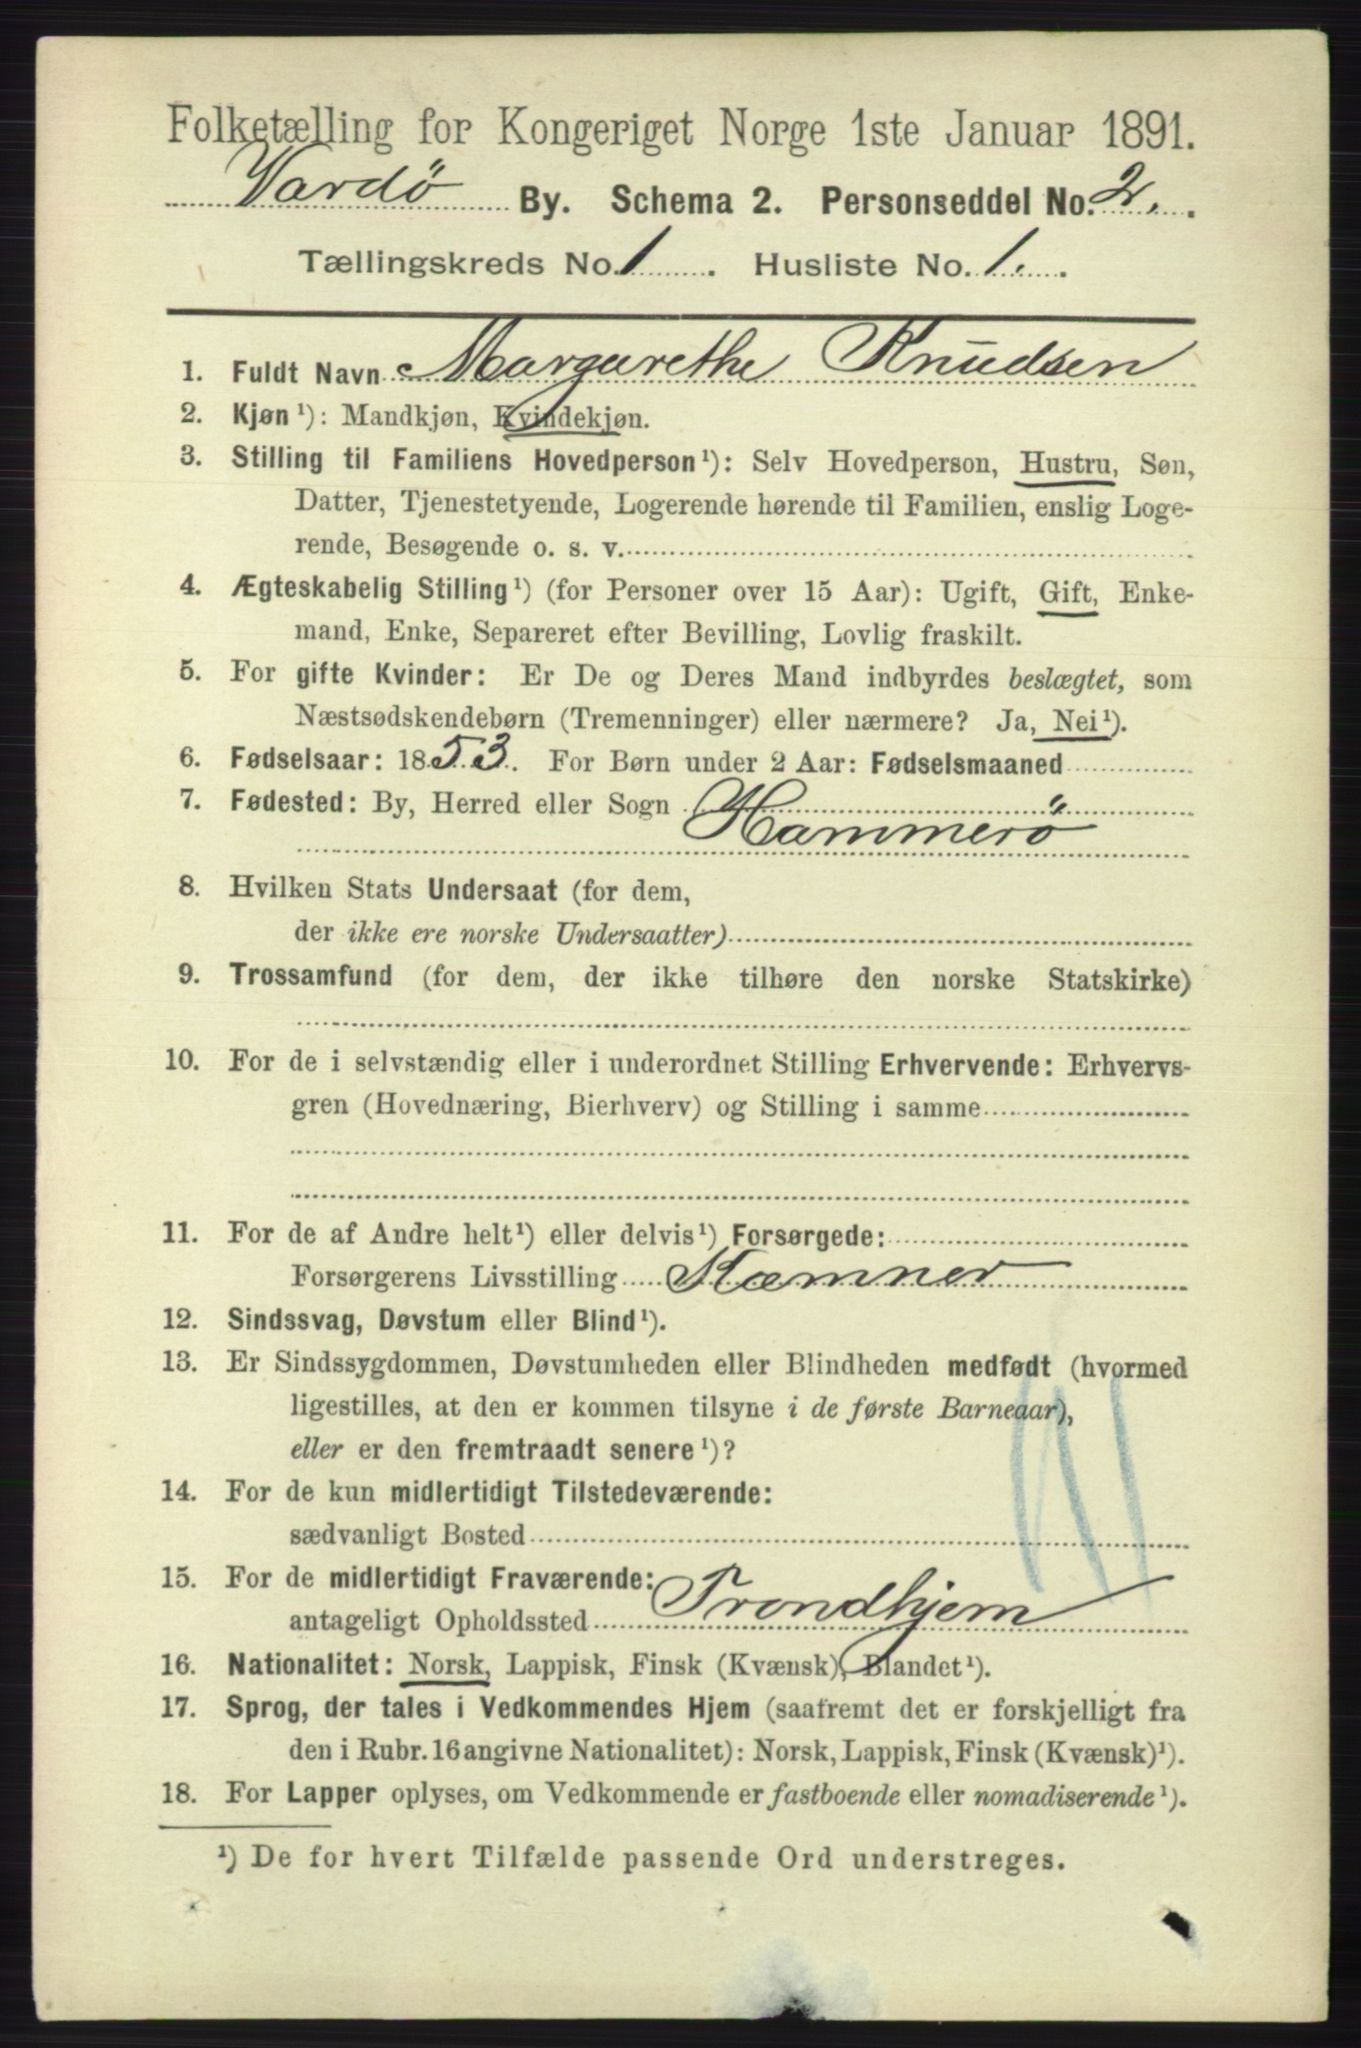 Folketælling for Kongeriget Norge 1ste Januar 1891.
Vardö By. Schema 2. Personseddel No. 2.
Tællingskreds No. 1. Husliste No. 1.
1. Fuldt Navn Margarethe Knudsen
2. Kjøn¹): Mandkjøn, Kvindekjøn.
3. Stilling til Familiens Hovedperson¹): Selv Hovedperson, Hustru, Søn,
Datter, Tjenestetyende, Logerende hørende til Familien, enslig Loge-
rende, Besøgende o. s. v.
4. Ægteskabelig Stilling¹) (for Personer over 15 Aar): Ugift, Gift, Enke-
mand, Enke, Separeret efter Bevilling, Lovlig fraskilt.
5. For gifte Kvinder: Er De og Deres Mand indbyrdes beslægtet, som
Næstsødskendebørn (Tremenninger) eller nærmere? Ja, Nei¹).
6. Fødselsaar: 1853. For Børn under 2 Aar: Fødselsmaaned
7. Fødested: By, Herred eller Sogn
Hammerö
8. Hvilken Stats Undersaat (for dem,
der ikke ere norske Undersaatter)
9. Trossamfund (for dem, der ikke tilhøre den norske Statskirke)
10. For de i selvstændig eller i underordnet Stilling Erhvervende: Erhvervs-
gren (Hovednæring, Bierhverv) og Stilling i samme
11. For de af Andre helt¹) eller delvis¹) Forsørgede:
Forsørgerens Livsstilling Kæmner
12. Sindssvag, Døvstum eller Blind¹).
13. Er Sindssygdommen, Døvstumheden eller Blindheden medfødt (hvormed
ligestilles, at den er kommen tilsyne i de første Barneaar),
eller er den fremtraadt senere¹)?
14. For de kun midlertidigt Tilstedeværende:
sædvanligt Bosted
15. For de midlertidigt Fraværende:
antageligt Opholdssted Trondhjem
16. Nationalitet: Norsk, Lappisk, Finsk (Kvænsk), Blandet¹).
17. Sprog, der tales i Vedkommendes Hjem (saafremt det er forskjelligt fra
den i Rubr. 16 angivne Nationalitet): Norsk, Lappisk, Finsk (Kvænsk)¹).
18. For Lapper oplyses, om Vedkommende er fastboende eller nomadiserende¹).
¹) De for hvert Tilfælde passende Ord understreges.